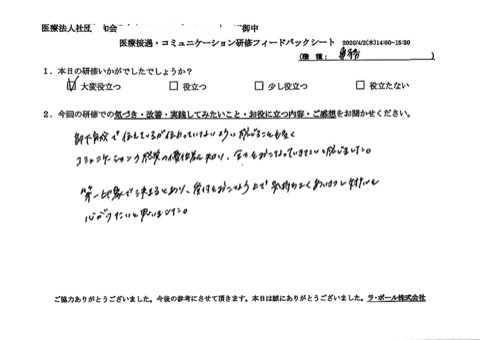 医療法人社団 和会 御中
医療接遇・コミュニケーション研修フィードバックシート 2026/4/2(木)14:00~15:30
(職 種: 事務 )
1.本日の研修いかがでしたでしょうか?
☑ 大変役立つ □ 役立つ □ 少し役立つ □ 役立たない
2.今回の研修での気づき・改善・実践してみたいこと・お役に立つ内容・ご感想をお聞かせください。
部下育成で伝えているが伝わっていないように感じることも多く
コミュニケーション 知り、 いきたいと感じました。
第一印象で決まるとあり、受付をおこなう上で気持ちよくあいさつし
心がけたいと思いました。
ご協力ありがとうございました。今後の参考にさせて頂きます。本日は誠にありがとうございました。ラ・ポール株式会社